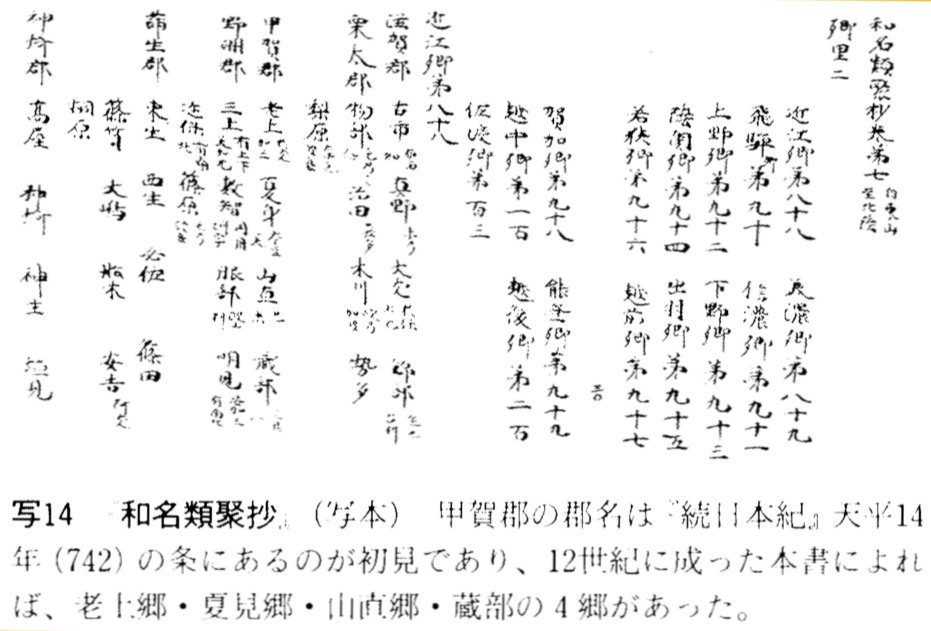 和名類聚抄巻第七
郷里二
近江郷第八十八 美濃郷第八十九
飛騨郷第九十 信濃郷第九十一
上野郷第九十二 下野郷第九十三
陸奥郷第九十四 出羽郷第九十五
若狭郷第九十六 越前郷第九十七
賀加郷第九十八 能登郷第九十九
越中郷第一百 越後郷第二百
佐渡郷第百三
近江郷第八十八
滋賀郡 古市 真野 大穴
栗太郡 物部 治田 木川 勢多
梨原
甲賀郡 老上 夏身 山直 蔵部
野洲郡 三上 敷智 服部 明見
篠原
蒲生郡 東生 西生 必佐 篠田
篠笥 大嶋 船木 安吉
桐原
神埼郡 高屋 神埼 神主
写14 『和名類聚抄』（写本） 甲賀郡の郡名は『続日本紀』天平14
年（742）の条にあるのが初見であり、12世紀に成った本書によれ
ば、老上郷・夏見郷・山直郷・蔵部の4郷があった。